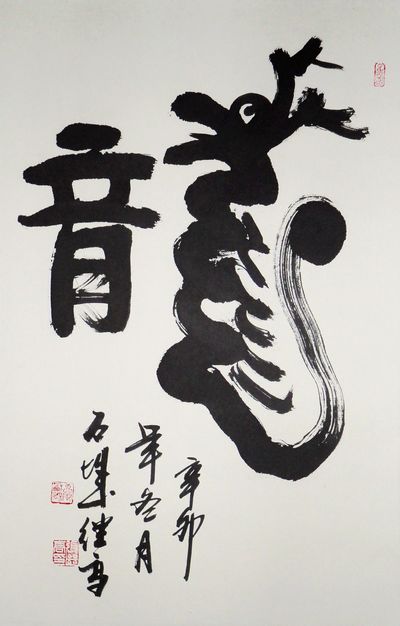 龍
辛卯
年冬月
石城继高